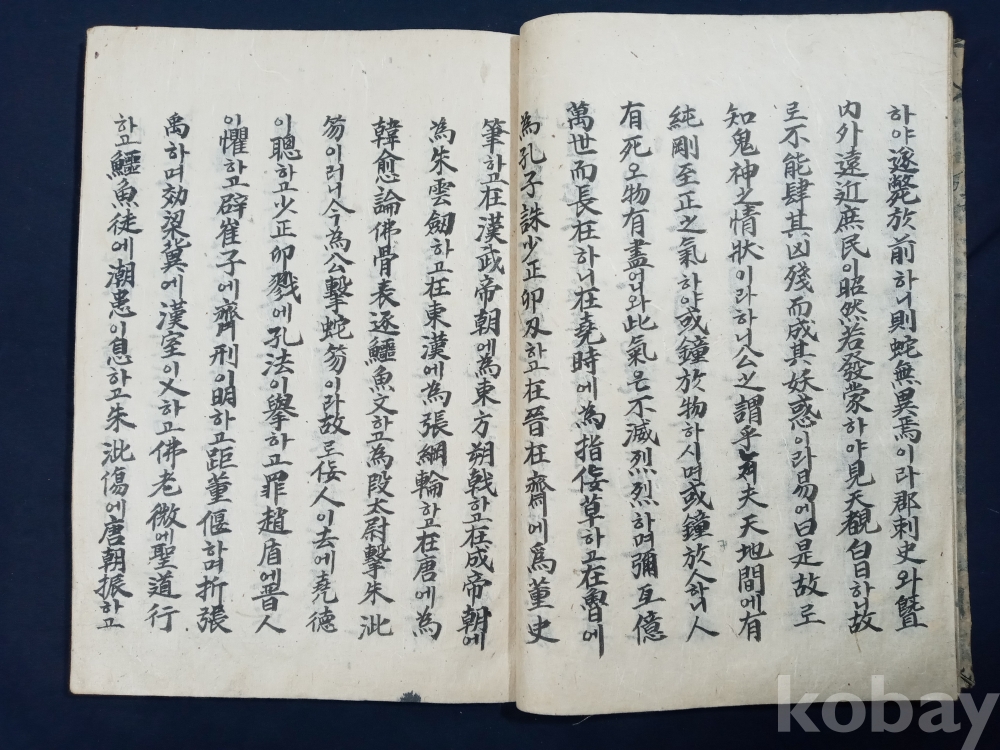 하야遂斃於前하니則蛇無異焉이라郡刺史와曁
內外遠近庶民이昭然若發蒙하야見天覩白日하니故
로不能肆其凶殘而成其妖惑이라易에曰是故로
知鬼神之情狀이라하니公之謂乎뎌夫天地間에有
純剛至正之氣하야或鐘於物하시며或鐘於人하니人
有死오物有盡이어니와此氣은不滅烈烈하며彌亙億
萬世而長在하니在堯時에爲指佞草하고在魯에
爲孔子誅少正卯刃하고在晉在齊에爲董史
筆하고在漢武帝朝에爲東方朔戟하고在成帝朝에
爲朱雲劒하고在東漢에爲張綱輪하고在唐에爲
韓愈論佛骨表逐鱷魚文하고爲段太尉擊朱泚
笏이러니今爲公擊蛇笏이라故로佞人이去에堯德
이聰하고少正卯戮에孔法이擧하고罪趙盾에晉人
이懼하고辟崔子에齊刑이明하고距董偃하며折張
禹하며劾梁冀에漢室이乂하고佛老微에聖道行
하고鱷魚徙에潮患이息하고朱泚傷에唐朝振하고
kobay